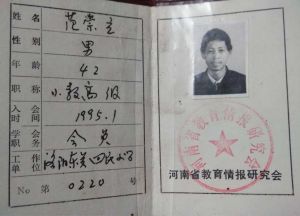 姓名 范崇主
性别 男
年龄 42
职称 小教高级
入会时间 1995.1
学会职务 会员
工作单位 洛阳东关回民小学
No 第 0220 号
河南省教育情报研究会
河南省教育情报研究会